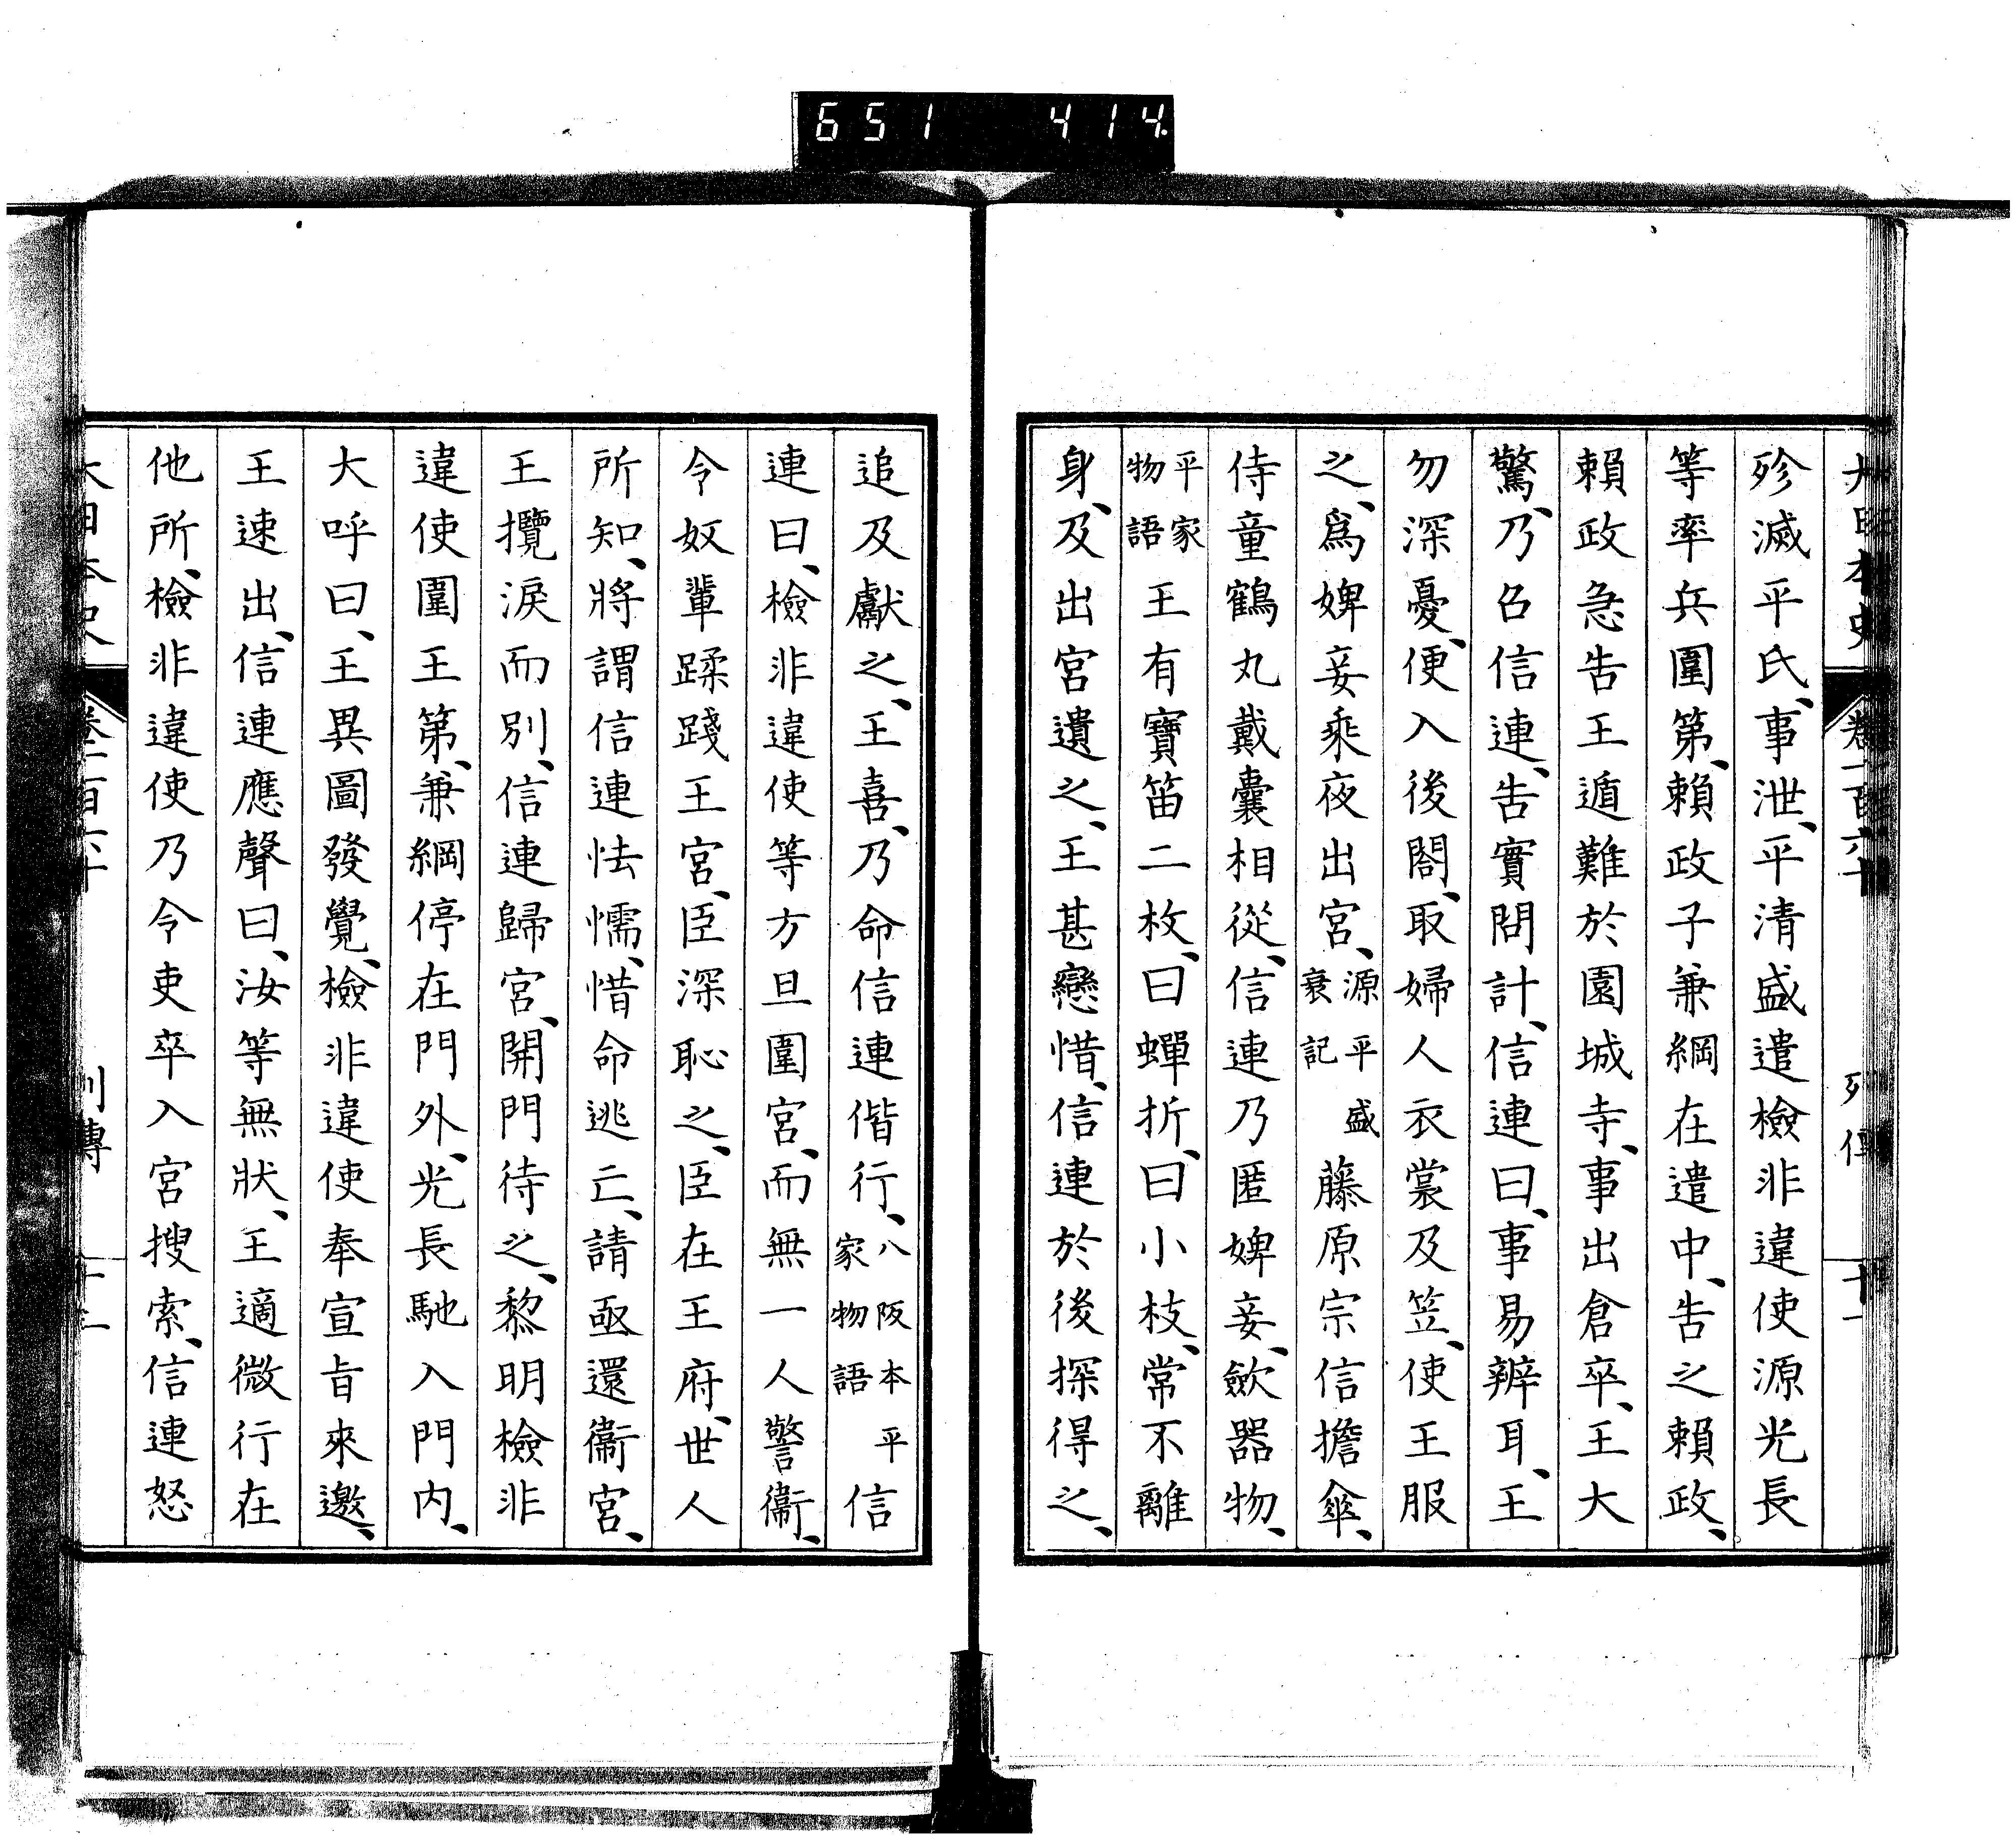 651 414
大日本史 卷一百六十 列傳 十一
殄滅平氏、事泄、平清盛遣檢非違使源光長
等率兵圍第、賴政子兼綱在遣中、告之賴政、
賴政急告王遁難於園城寺、事出倉卒、王大
驚、乃召信連、告實問計、信連曰、事易辨耳、王
勿深憂、便入後閤、取婦人衣裳及笠、使王服
之、爲婢妾乘夜出宮、源平盛衰記藤原宗信擔傘、
侍童鶴丸戴囊相從、信連乃匿婢妾、斂器物、
平家物語王有寶笛二枚、曰蟬折、曰小枝、常不離
身、及出宮遺之、王甚戀惜、信連於後探得之、
追及獻之、王喜、乃命信連偕行、八阪本平家物語信
連曰、檢非違使等方旦圍宮、而無一人警衞、
令奴輩蹂踐王宮、臣深恥之、臣在王府、世人
所知、將謂信連怯懦、惜命逃亡、請亟還衞宮、
王攬淚而別、信連歸宮、開門待之、黎明檢非
違使圍王第、兼綱停在門外、光長馳入門內、
大呼曰、王異圖發覺、檢非違使奉宣旨來邀、
王速出、信連應聲曰、汝等無狀、王適微行在
他所、檢非違使乃令吏卒入宮搜索、信連怒
大日本史 卷一百六十 列傳